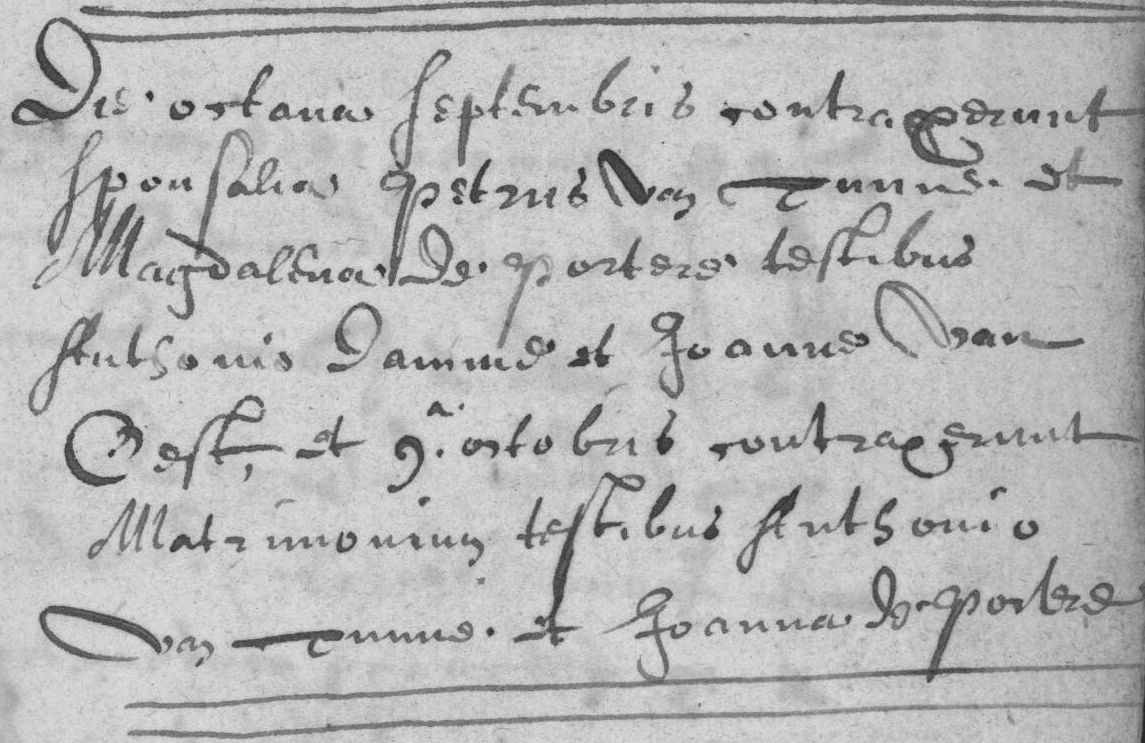 Die octava septembris contraxerunt
sponsalia petrus van Tunne et
Magdalena de portere testibus
Anthonio Damme et Joanne van
Oest, et 9.ᵃ octobris contraxerunt
Matrimonium testibus Anthonio
van Tunne et Joanna de portere